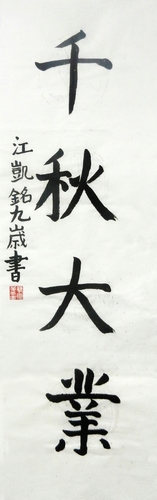 千秋大業
江凱銘九歲書